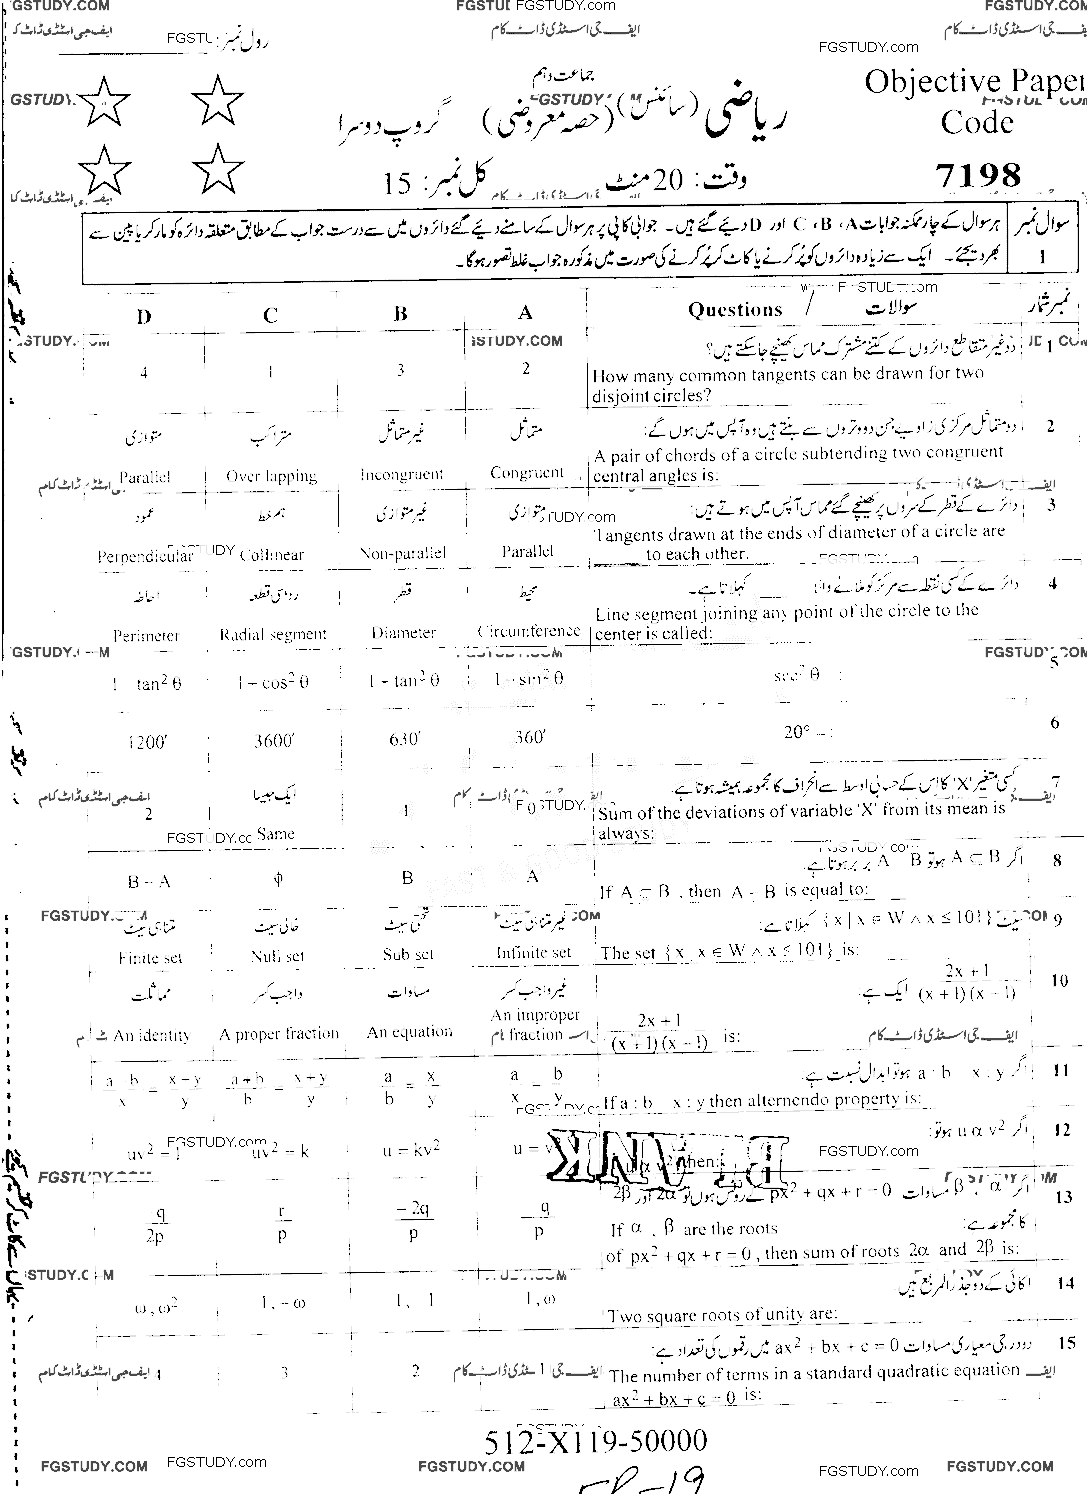 GSTUDY.COM FGSTUDY FGSTUDY.COM FGSTUDY.COM
ایف جی اسٹڈی ڈاٹ کام ایف جی اسٹڈی ڈاٹ کام
رول نمبر: FGSTUDY.com
جماعت دہم
Objective Paper
Code
7198
ریاضی (سائنس) (حصہ معروضی) گروپ دوسرا
وقت: 20 منٹ کل نمبر: 15
سوال نمبر 1
ہر سوال کے چار ممکنہ جوابات A، B، C اور D دیئے گئے ہیں۔ جوابی کاپی پر ہر سوال کے سامنے دیئے گئے دائروں میں سے درست جواب کے مطابق متعلقہ دائرہ کو مارکر یا پین سے
بھر دیجئے۔ ایک سے زیادہ دائروں کو پُر کرنے یا کاٹ کر پُر کرنے کی صورت میں مذکورہ جواب غلط تصور ہوگا۔
D C B A Questions / سوالات نمبر شمار
1 دو غیر متقاطع دائروں کے کتنے مشترک مماس کھینچے جا سکتے ہیں؟
4 1 3 2 How many common tangents can be drawn for two
disjoint circles?
2 دو متماثل مرکزی زاویے جن دو وتروں سے بنتے ہیں وہ آپس میں ہوں گے:
متوازی متراکب غیر متماثل متماثل
A pair of chords of a circle subtending two congruent
Parallel Over lapping Incongruent Congruent central angles is:
3 دائرے کے قطر کے سروں پر کھینچے گئے مماس آپس میں ہوتے ہیں:
عمود ہم خط غیر متوازی متوازی
Tangents drawn at the ends of diameter of a circle are
Perpendicular Collinear Non-parallel Parallel ______ to each other.
4 دائرے کے کسی نقطہ سے مرکز کو ملانے والا ____ کہلاتا ہے۔
احاطہ رداسی قطعہ قطر محیط
Line segment joining any point of the circle to the
Perimeter Radial segment Diameter Circumference center is called:
5
tan² θ 1 - cos² θ sin² θ sec² θ
6
1200′ 3600′ 630′ 360′ 20° = :
7 کسی متغیر 'X' کا اس کے حسابی اوسط سے انحراف کا مجموعہ ہمیشہ ہوتا ہے۔
ایک جیسا
2 Same 1 0 Sum of the deviations of variable 'X' from its mean is
always:
8 اگر A ⊂ B ہو تو A B برابر ہوتا ہے۔
B – A φ B A If A ⊂ B , then A - B is equal to:
9 سیٹ {x | x ∈ W ∧ x ≤ 101} کہلاتا ہے:
متناہی سیٹ خالی سیٹ تحتی سیٹ غیر متناہی سیٹ
Finite set Null set Sub set Infinite set The set {x x ∈ W ∧ x ≤ 101} is:
10 2x + 1 / (x + 1)(x – 1) ایک ہے۔
مماثلت واجب کسر مساوات غیر واجب کسر
An identity A proper fraction An equation An improper fraction 2x + 1 / (x + 1)(x – 1) is:
11 اگر a : b x : y ہو تو ابدال نسبت ہے۔
a b / x = x – y / y a + b / b = x + y / y a / b = x / y a / x = b / y If a : b x : y then alternendo property is:
12 اگر u α v² ہو تو:
uv² = 1 uv² = k u = kv² u = v u α v² then:
13 اگر α ، β مساوات px² + qx + r = 0 کے روٹس ہوں تو 2α اور 2β
کا مجموعہ ہے:
q / 2p r / p –2q / p q / p If α , β are the roots
of px² + qx + r = 0 , then sum of roots 2α and 2β is:
14 اکائی کے دو جذر المربع ہیں:
ω , ω² 1, –ω 1, 1 1, ω Two square roots of unity are:
15 دو درجی معیاری مساوات ax² + bx + c = 0 میں رقموں کی تعداد ہے:
4 3 2 1 The number of terms in a standard quadratic equation
ax² + bx + c = 0 is:
512-X119-50000
FGSTUDY.COM FGSTUDY.com FGSTUDY.COM FGSTUDY.com FGSTUDY.COM